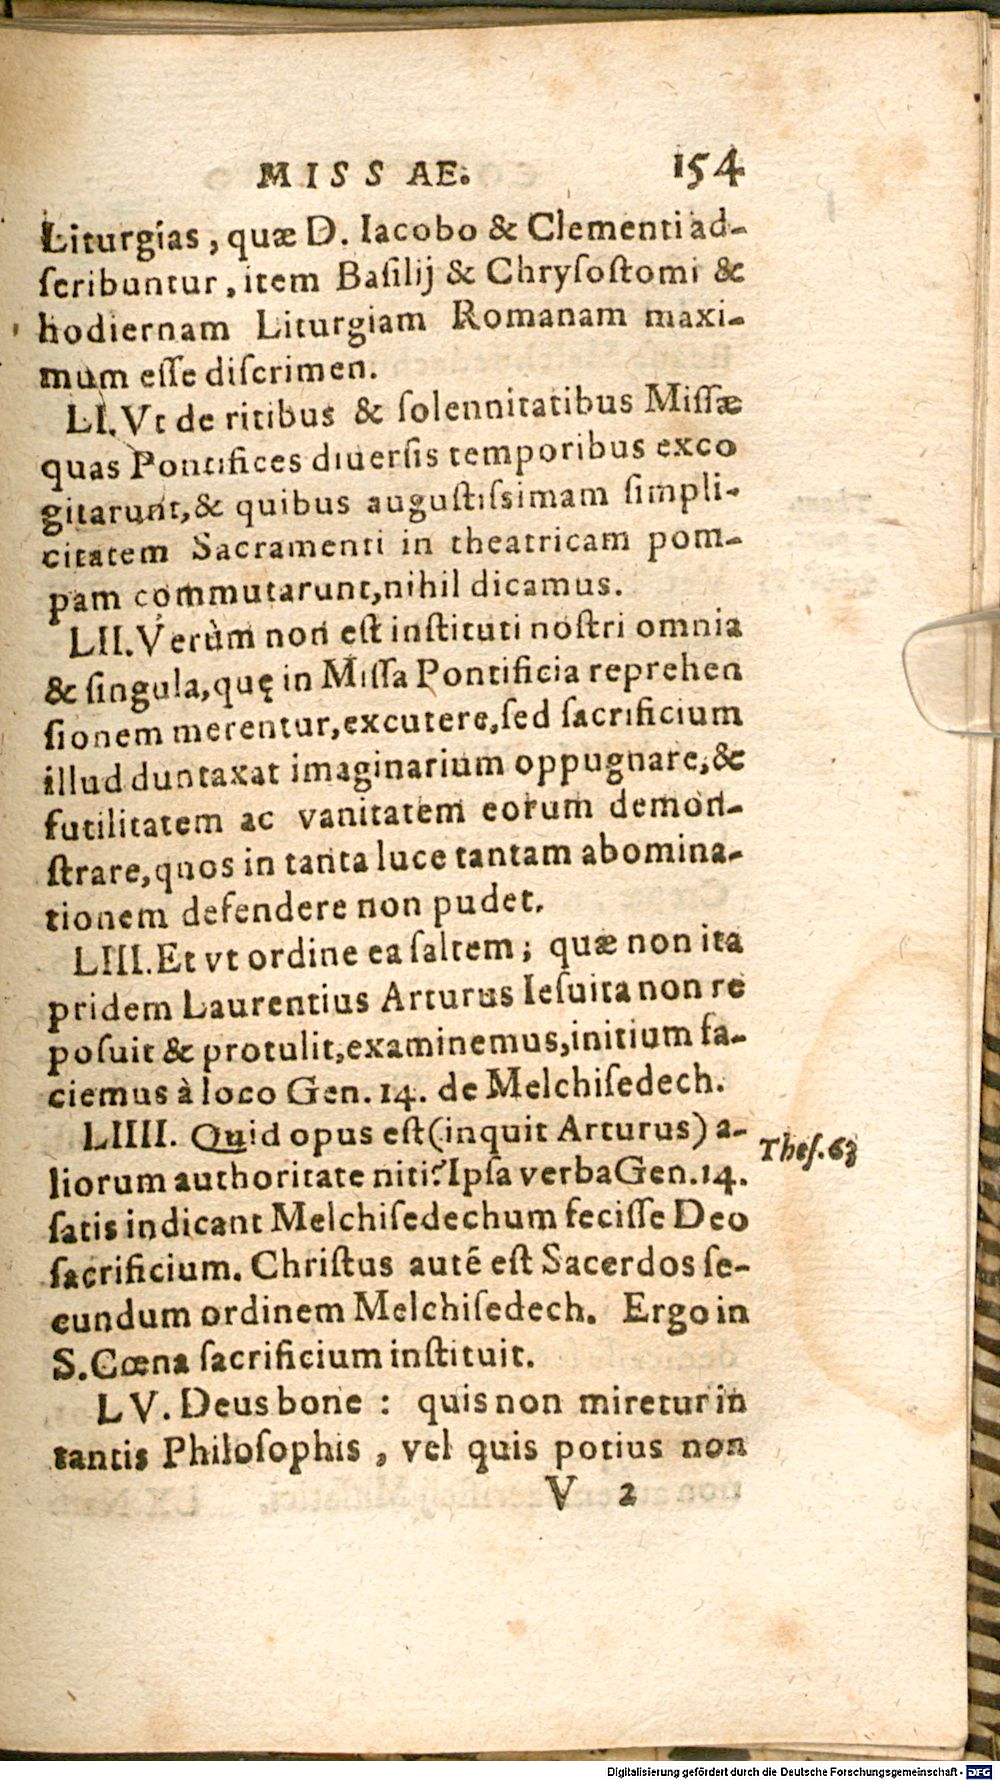 MISSAE. 154
Liturgias, quæ D. Iacobo & Clementi ad-
ſcribuntur, item Baſilij & Chryſoſtomi &
hodiernam Liturgiam Romanam maxi-
mum eſſe diſcrimen.
LI. Vt de ritibus & ſolennitatibus Miſſæ
quas Pontifices diuerſis temporibus exco
gitarunt, & quibus auguſtiſsimam ſimpli-
citatem Sacramenti in theatricam pom-
pam commutarunt, nihil dicamus.
LII. Verùm non eſt inſtituti noſtri omnia
& ſingula, quę in Miſſa Pontificia reprehen
ſionem merentur, excutere, ſed ſacrificium
illud duntaxat imaginarium oppugnare, &
futilitatem ac vanitatem eorum demon-
ſtrare, quos in tanta luce tantam abomina-
tionem defendere non pudet.
LIII. Et vt ordine ea ſaltem; quæ non ita
pridem Laurentius Arturus Ieſuita non re
poſuit & protulit, examinemus, initium fa-
ciemus à loco Gen. 14. de Melchiſedech.
LIIII. Quid opus eſt (inquit Arturus) a-
Theſ. 63
liorum authoritate niti? Ipſa verba Gen. 14.
ſatis indicant Melchiſedechum feciſſe Deo
ſacrificium. Chriſtus autē eſt Sacerdos ſe-
cundum ordinem Melchiſedech. Ergo in
S. Cœna ſacrificium inſtituit.
LV. Deus bone : quis non miretur in
tantis Philoſophis, vel quis potius non
V 2
Digitalisierung gefördert durch die Deutsche Forschungsgemeinschaft - DFG